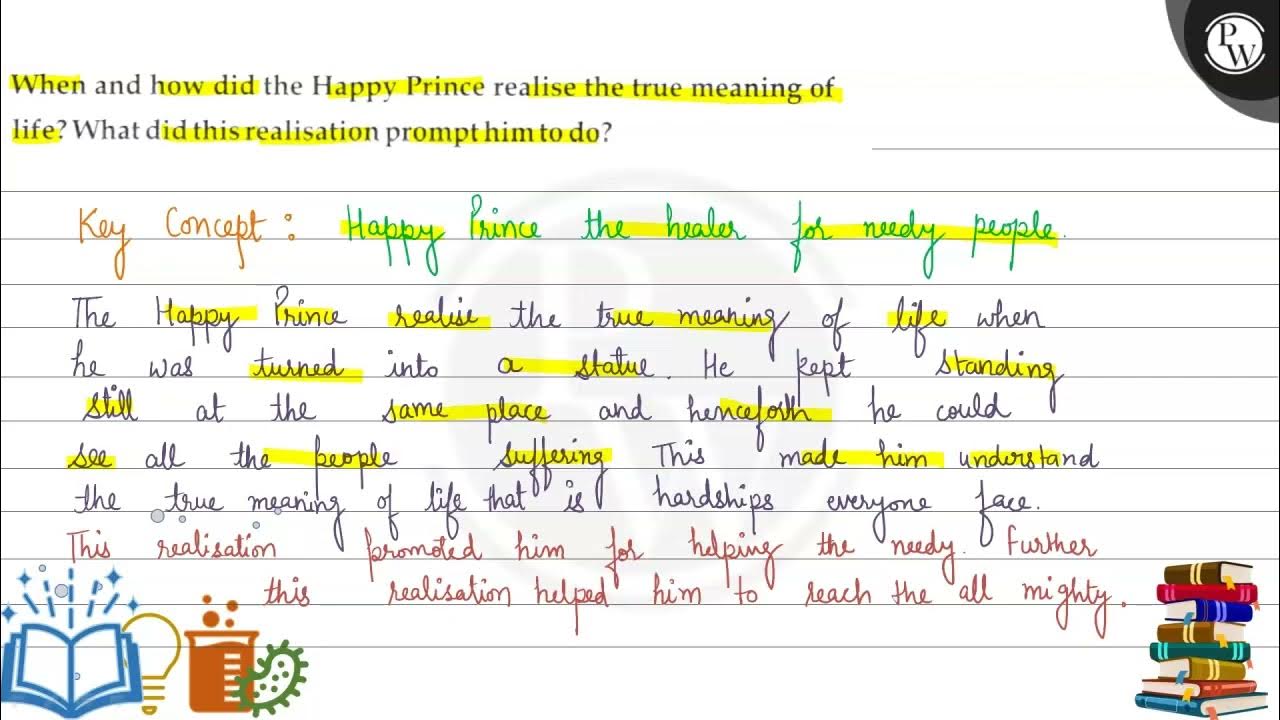 PW
When and how did the Happy Prince realise the true meaning of
life? What did this realisation prompt him to do?
Key Concept : Happy Prince the healer for needy people.
The Happy Prince realise the true meaning of life when
he was turned into a statue. He kept standing
still at the same place and henceforth he could
see all the people suffering This made him understand
the true meaning of life that is hardships everyone face.
This realisation promoted him for helping the needy. Further
this realisation helped him to reach the all mighty.